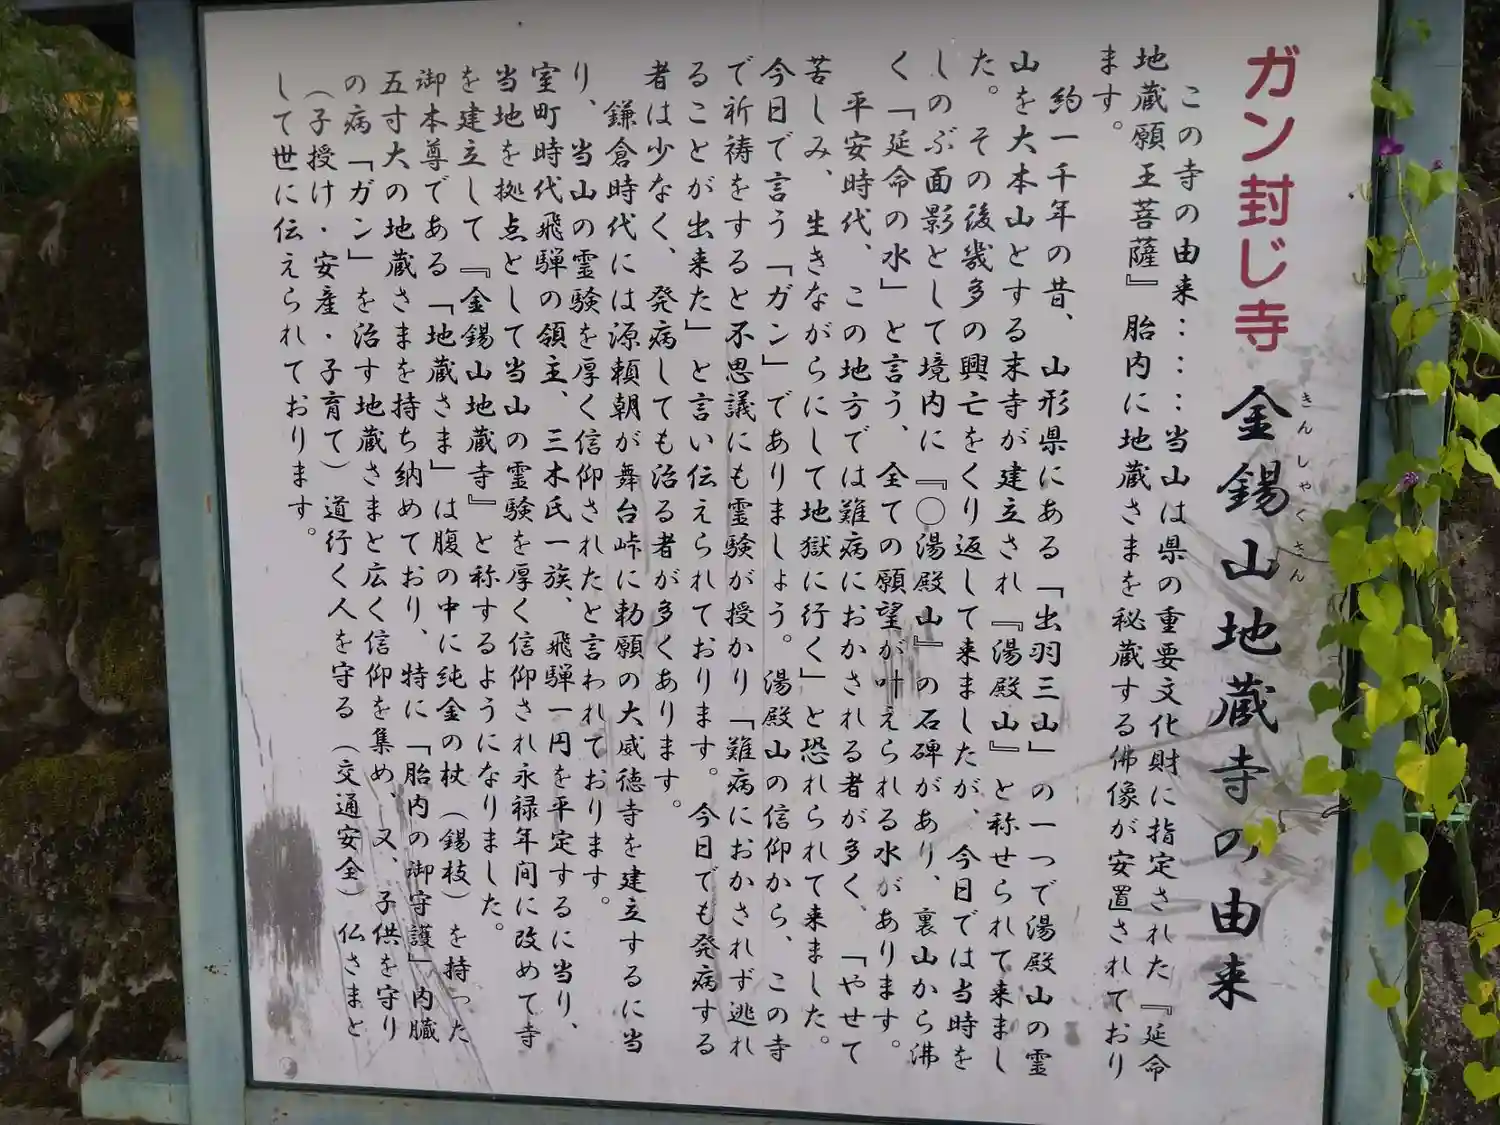 ガン封じ寺 金錫山地蔵寺の由来
きんしゃくさん
この寺の由来……当山は県の重要文化財に指定された『延命
地蔵願王菩薩』胎内に地蔵さまを秘蔵する佛像が安置されており
ます。
約一千年の昔、山形県にある「出羽三山」の一つで湯殿山の霊
山を大本山とする末寺が建立され『湯殿山』と称せられて来まし
た。その後幾多の興亡をくり返して来ましたが、今日では当時を
しのぶ面影として境内に『〇湯殿山』の石碑があり、裏山から沸
く「延命の水」と言う、全ての願望が叶えられる水があります。
平安時代、この地方では難病におかされる者が多く、「やせて
苦しみ、生きながらにして地獄に行く」と恐れられて来ました。
今日で言う「ガン」でありましょう。湯殿山の信仰から、この寺
で祈祷をすると不思議にも霊験が授かり「難病におかされず逃れ
ることが出来た」と言い伝えられております。今日でも発病する
者は少なく、発病しても治る者が多くあります。
鎌倉時代には源頼朝が舞台峠に勅願の大威徳寺を建立するに当
り、当山の霊験を厚く信仰されたと言われております。
室町時代飛騨の領主、三木氏一族、飛騨一円を平定するに当り、
当地を拠点として当山の霊験を厚く信仰され永禄年间に改めて寺
を建立して『金錫山地蔵寺』と称するようになりました。
御本尊である「地蔵さま」は腹の中に純金の杖（錫枝）を持った
五寸大の地蔵さまを持ち納めており、特に「胎内の御守護」内臓
の病「ガン」を治す地蔵さまと広く信仰を集め、又、子供を守り
（子授け・安産・子育て）道行く人を守る（交通安全）仏さまと
して世に伝えられております。